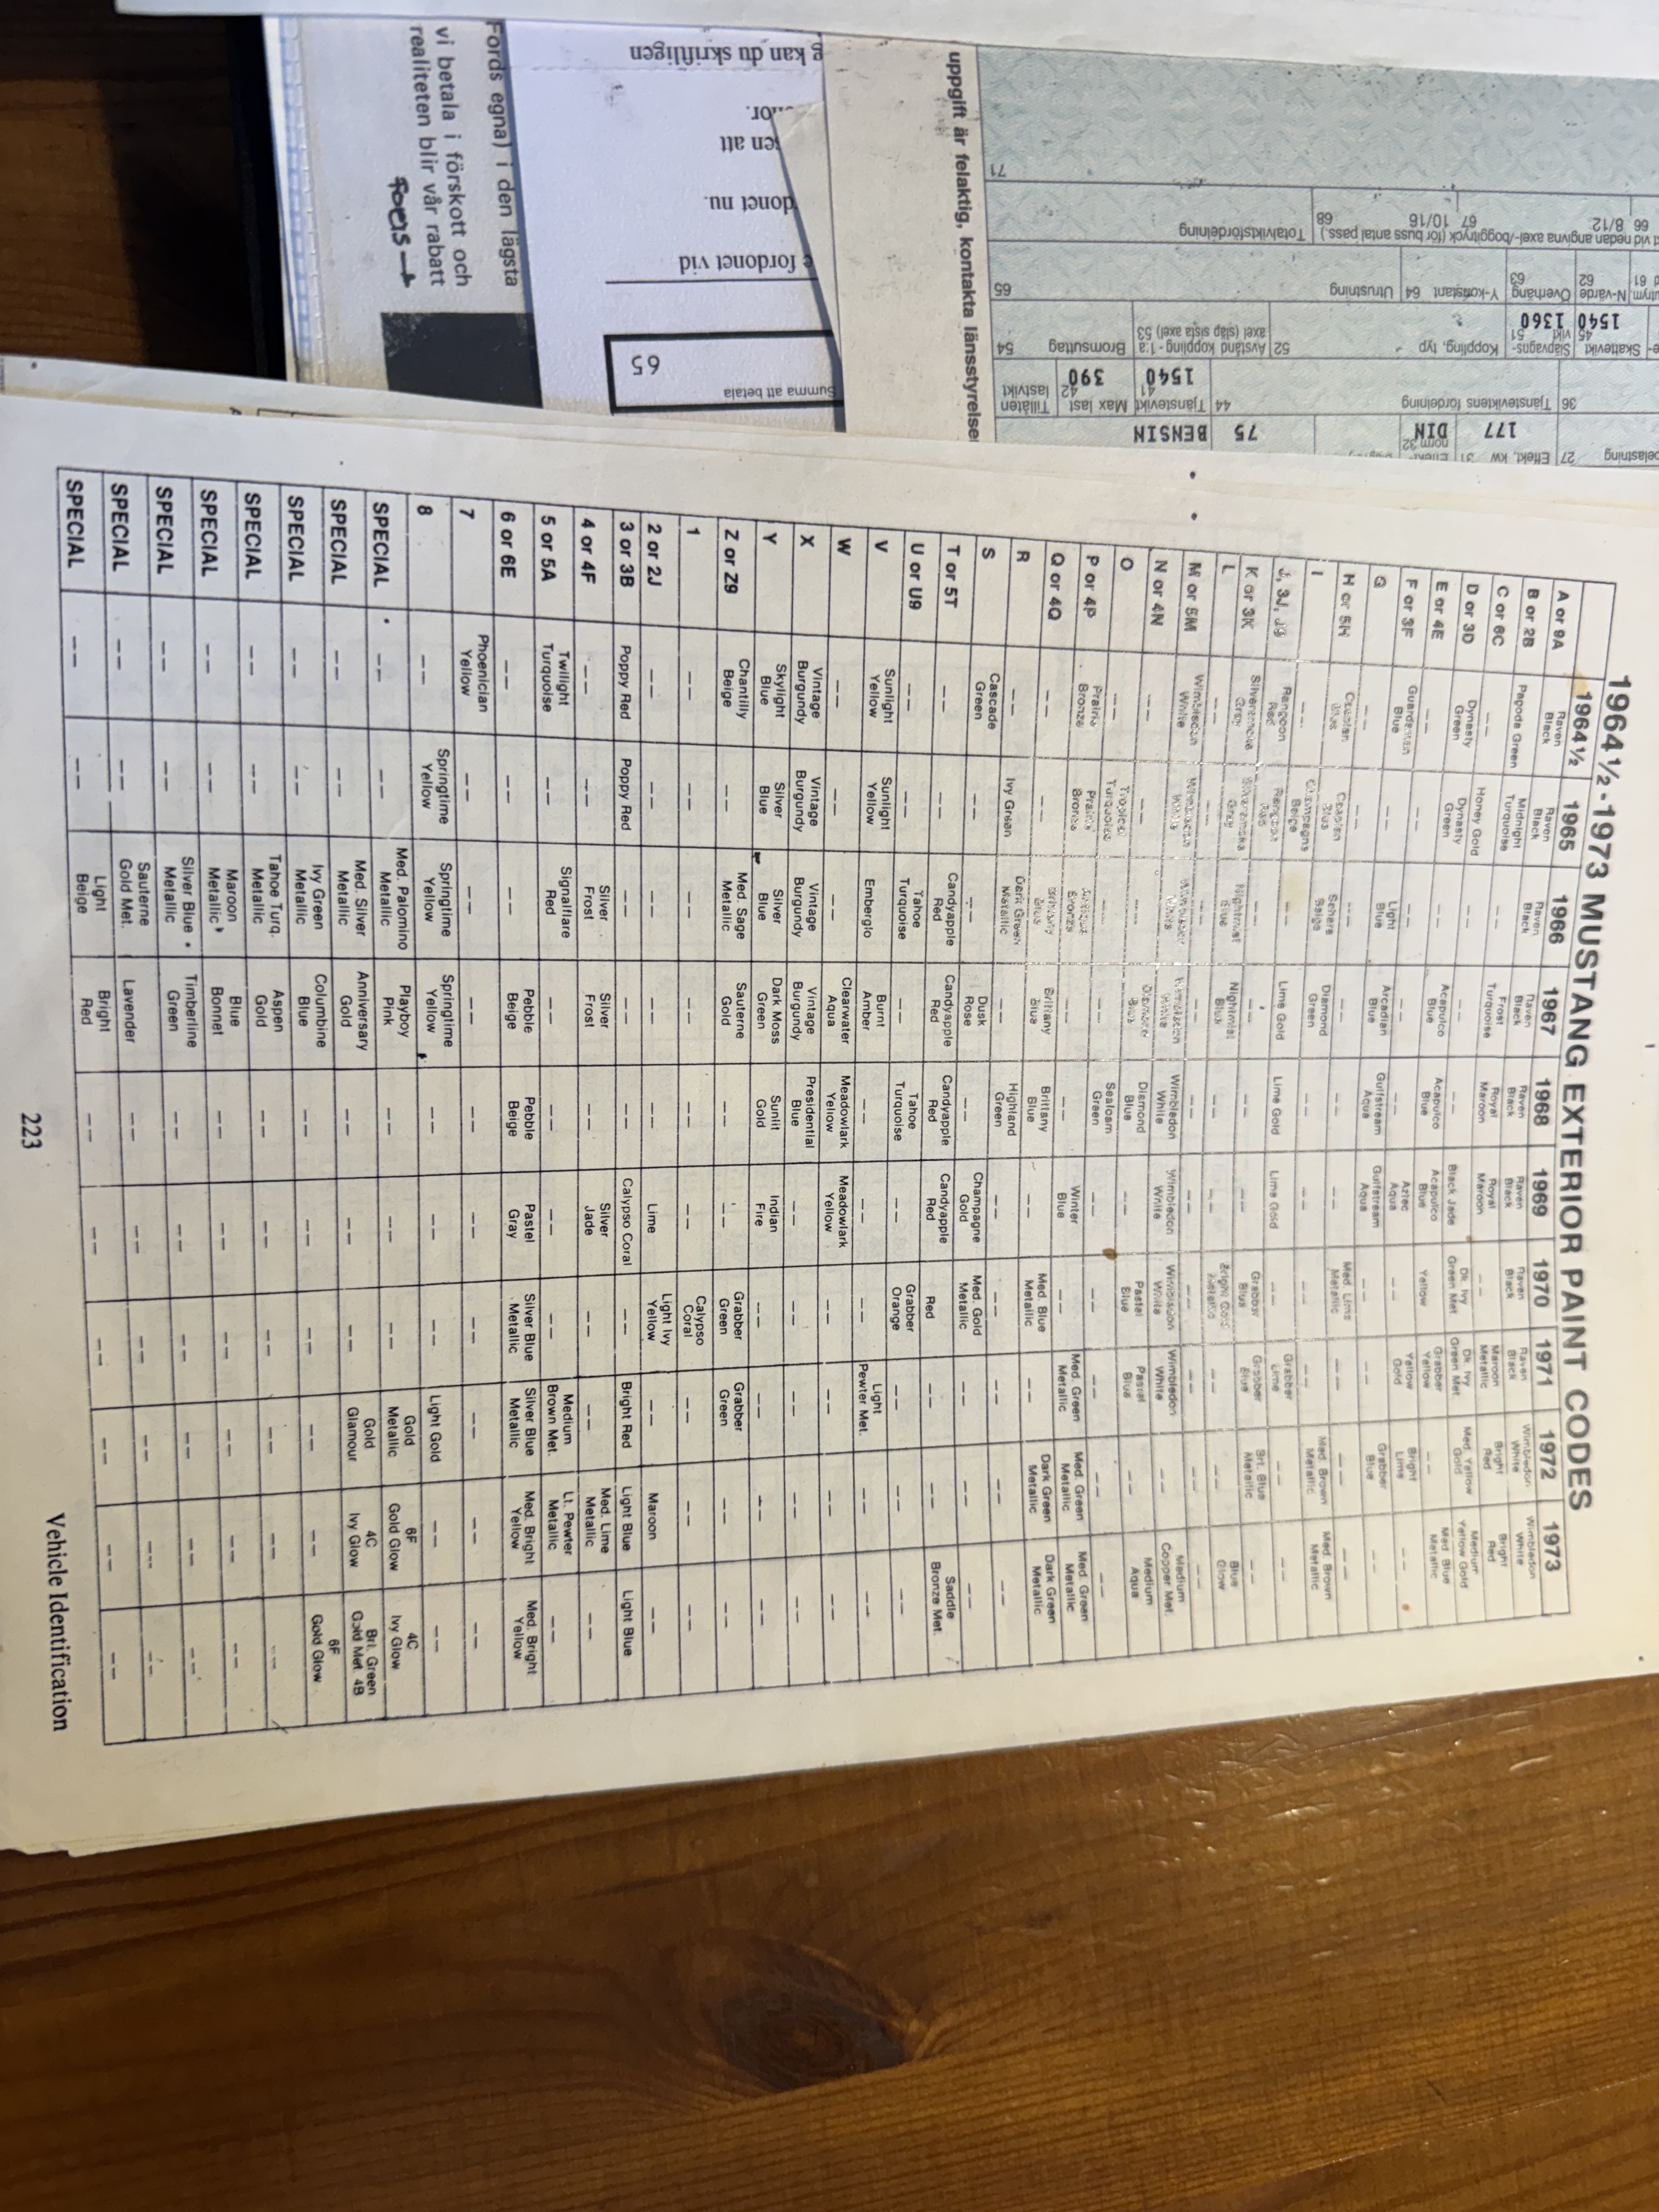 1964½-1973 MUSTANG EXTERIOR PAINT CODES
1964½ 1965 1966 1967 1968 1969 1970 1971 1972 1973
A or 9A Raven Black Raven Black Raven Black Raven Black Raven Black Raven Black Raven Black Raven Black Wimbledon White Wimbledon White
B or 2B Pagoda Green Midnight Turquoise -- Frost Turquoise Royal Maroon Royal Maroon -- Maroon Metallic Bright Red Bright Red
C or 6C -- Honey Gold -- -- -- Black Jade Dk. Ivy Green Met Dk. Ivy Green Met Med. Yellow Gold Medium Yellow Gold
D or 3D Dynasty Green Dynasty Green -- Acapulco Blue Acapulco Blue Acapulco Blue Yellow Grabber Yellow -- Med. Blue Metallic
E or 4E -- -- -- -- -- Aztec Aqua -- Yellow Gold Bright Lime --
F or 3F Guardsman Blue -- Light Blue Arcadian Blue Gulfstream Aqua Gulfstream Aqua -- -- Grabber Blue --
G -- -- -- -- -- -- Med. Lime Metallic -- -- --
H or 5H Caspian Blue Caspian Blue Sahara Beige Diamond Green -- -- -- -- Med. Brown Metallic Med. Brown Metallic
I -- Champagne Beige -- Lime Gold Lime Gold Lime Gold -- Grabber Lime -- --
J, 3J, J9 Rangoon Red Rangoon Red -- -- -- -- Grabber Blue Grabber Blue Brt. Blue Metallic --
K or 3K Silversmoke Gray Silversmoke Gray Nightmist Blue Nightmist Blue -- -- Bright Gold Metallic -- -- Blue Glow
L -- -- -- -- -- -- -- -- -- --
M or 5M Wimbledon White Wimbledon White Wimbledon White Wimbledon White Wimbledon White Wimbledon White Wimbledon White Wimbledon White -- Medium Copper Met.
N or 4N -- -- -- Diamond Blue Diamond Blue -- Pastel Blue Pastel Blue -- Medium Aqua
O -- Tropical Turquoise -- -- Seafoam Green -- -- -- -- --
P or 4P Prairie Bronze Prairie Bronze Antique Bronze -- -- Winter Blue -- Med. Green Metallic Med. Green Metallic Med. Green Metallic
Q or 4Q -- -- Brittany Blue Brittany Blue Brittany Blue -- Med. Blue Metallic -- Dark Green Metallic Dark Green Metallic
R -- Ivy Green Dark Green Metallic -- Highland Green -- -- -- -- --
S Cascade Green -- -- Dusk Rose -- Champagne Gold Med. Gold Metallic -- -- --
T or 5T -- -- Candyapple Red Candyapple Red Candyapple Red Candyapple Red Red -- -- Saddle Bronze Met.
U or U9 -- -- Tahoe Turquoise -- Tahoe Turquoise -- Grabber Orange -- -- --
V Sunlight Yellow Sunlight Yellow Emberglo Burnt Amber -- -- -- Light Pewter Met. -- --
W -- -- -- Clearwater Aqua Meadowlark Yellow Meadowlark Yellow -- -- -- --
X Vintage Burgundy Vintage Burgundy Vintage Burgundy Vintage Burgundy Presidential Blue -- -- -- -- --
Y Skylight Blue Silver Blue Silver Blue Dark Moss Green Sunlit Gold Indian Fire -- -- -- --
Z or Z9 Chantilly Beige -- Med. Sage Metallic Sauterne Gold -- -- Grabber Green Grabber Green -- --
1 -- -- -- -- -- -- Calypso Coral -- -- --
2 or 2J -- -- -- -- -- Lime Light Ivy Yellow -- Maroon --
3 or 3B Poppy Red Poppy Red -- -- -- Calypso Coral -- Bright Red Light Blue Light Blue
4 or 4F -- -- Silver Frost Silver Frost -- Silver Jade -- -- Med. Lime Metallic --
5 or 5A Twilight Turquoise -- Signalflare Red -- -- -- -- Medium Brown Met. Lt. Pewter Metallic --
6 or 6E -- -- -- Pebble Beige Pebble Beige Pastel Gray Silver Blue Metallic Silver Blue Metallic Med. Bright Yellow Med. Bright Yellow
7 Phoenician Yellow -- -- -- -- -- -- -- -- --
8 -- Springtime Yellow Springtime Yellow Springtime Yellow -- -- -- Light Gold -- --
SPECIAL -- -- Med. Palomino Metallic Playboy Pink -- -- -- Gold Metallic 6F Gold Glow 4C Ivy Glow
SPECIAL -- -- Med. Silver Metallic Anniversary Gold -- -- -- Gold Glamour 4C Ivy Glow Bri. Green Gold Met. 4B
SPECIAL -- -- Ivy Green Metallic Columbine Blue -- -- -- -- -- 6F Gold Glow
SPECIAL -- -- Tahoe Turq. Metallic Aspen Gold -- -- -- -- -- --
SPECIAL -- -- Maroon Metallic Blue Bonnet -- -- -- -- -- --
SPECIAL -- -- Silver Blue Metallic Timberline Green -- -- -- -- -- --
SPECIAL -- -- Sauterne Gold Met. Lavender -- -- -- -- -- --
SPECIAL -- -- Light Beige Bright Red -- -- -- -- -- --
223
Vehicle Identification
Fords egna) i den lägsta
vi betala i förskott och
realiteten blir vår rabatt
g kan du skriftligen
att
donet nu.
fordonet vid
Summa att betala
65
uppgift är felaktig, kontakta länsstyrelse
71
66 8/12 67 10/16 68
vid nedan angivna axel-/boggitryck (för buss antal pass.) Totalviktsfördelning
61 N-värde 62 Överhäng 63 Y-konstant 64 Utrustning 65
1540 1360
Skattevikt 45 Släpvagns- vikt 51 Koppling, typ 52 Avstånd koppling - 1:a axel (släp sista axel) 53 Bromsuttag 54
1540 390
36 Tjänsteviktens fördelning 44 Tjänstevikt 41 Max last 42 Tillåten lastvikt
177 DIN 75 BENSIN
belastning 27 Effekt, kW 31 norm 32